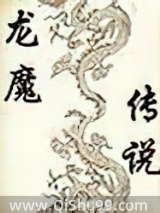 龙魔
传说
www.Qishu99.com